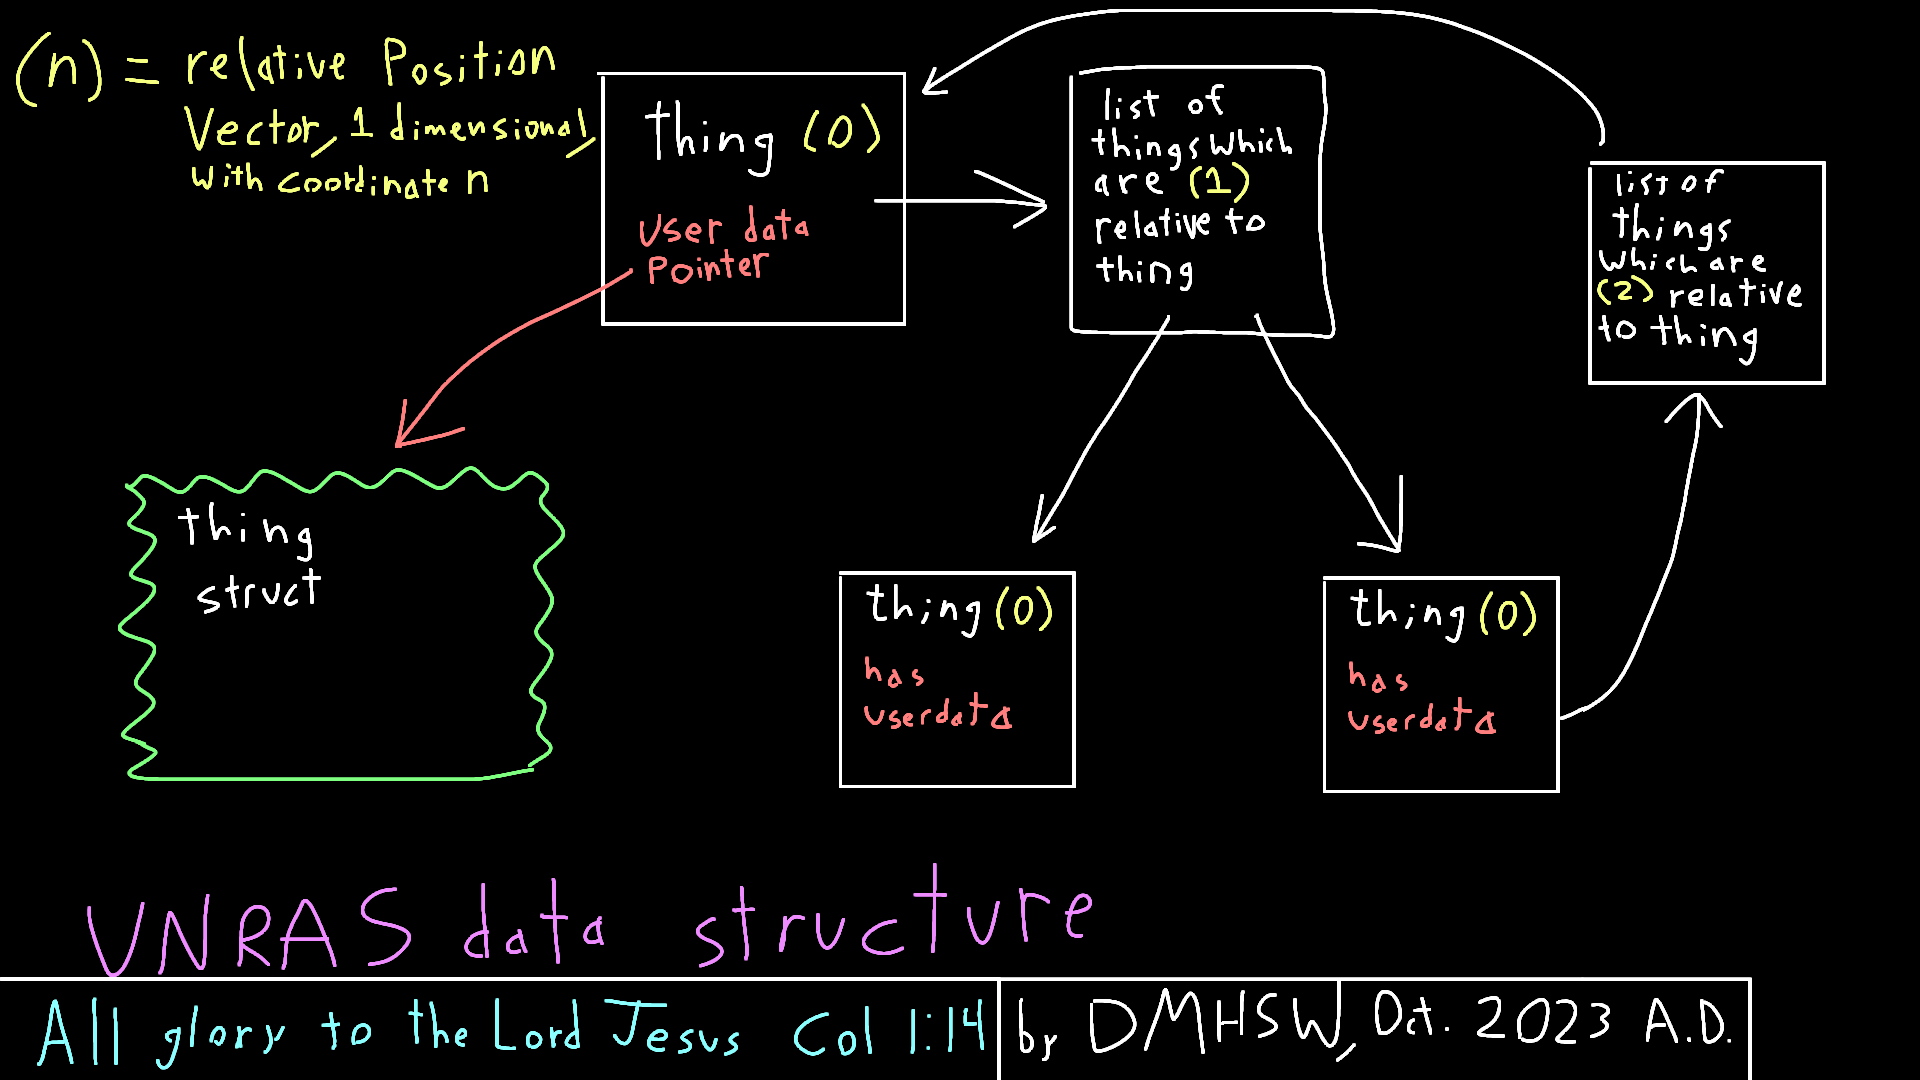 (n) = relative Position
Vector, 1 dimensional,
with coordinate n
thing (0)
User data
Pointer
list of
things which
are (1)
relative to
thing
list of
things
which are
(2) relative
to thing
thing
struct
thing (0)
has
userdata
thing (0)
has
userdata
UNRAS data structure
All glory to the Lord Jesus Col 1:14
by DMHSW, Oct. 2023 A.D.